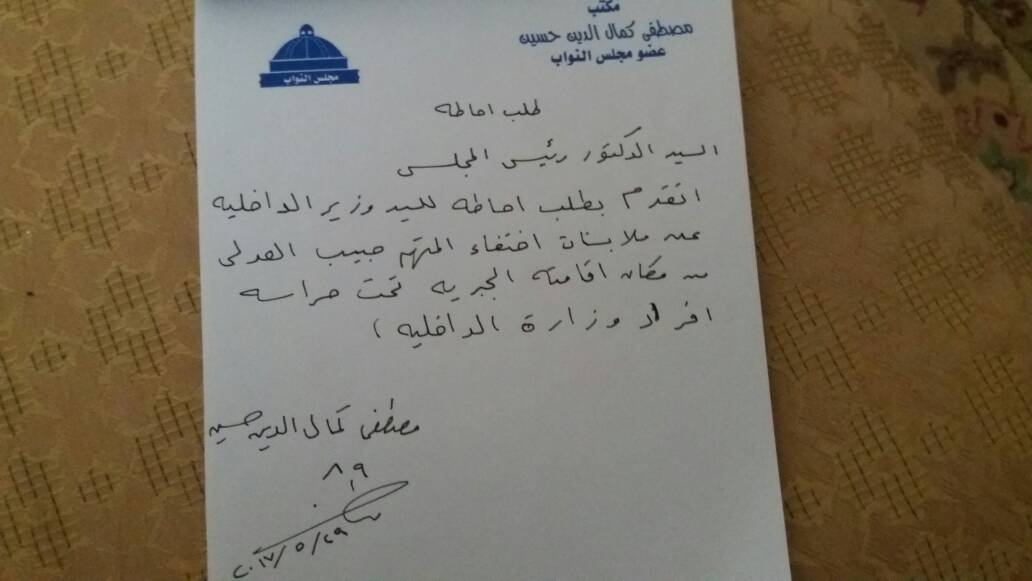 مكتب
مصطفى كمال الدين حسين
عضو مجلس النواب
مجلس النواب
طلب احاطه
السيد الدكتور رئيس المجلس
اتقدم بطلب احاطه للسيد وزير الداخليه
عن ملابسات اختفاء المتهم حبيب العدلى
من مكان اقامته الجبريه تحت حراسه
افراد وزارة الداخليه )
مصطفى كمال الدين حسين
٨٩
٢٠١٧/٥/٢٩